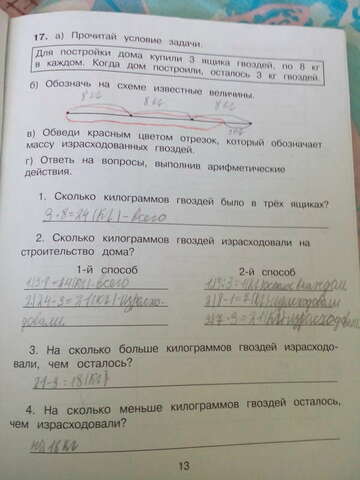 17. а) Прочитай условие задачи.
Для постройки дома купили 3 ящика гвоздей, по 8 кг
в каждом. Когда дом построили, осталось 3 кг гвоздей.
б) Обозначь на схеме известные величины.
8 кг 8 кг 8 кг
3кг
в) Обведи красным цветом отрезок, который обозначает
массу израсходованных гвоздей.
г) Ответь на вопросы, выполнив арифметические
действия.
1. Сколько килограммов гвоздей было в трёх ящиках?
3·8=24(кг)-всего
2. Сколько килограммов гвоздей израсходовали на
строительство дома?
1-й способ 2-й способ
-всего
2)24-3=21(кг)-израсхо-
довали
3. На сколько больше килограммов гвоздей израсходо-
вали, чем осталось?
21-3=18(кг)
4. На сколько меньше килограммов гвоздей осталось,
чем израсходовали?
на 18кг
13